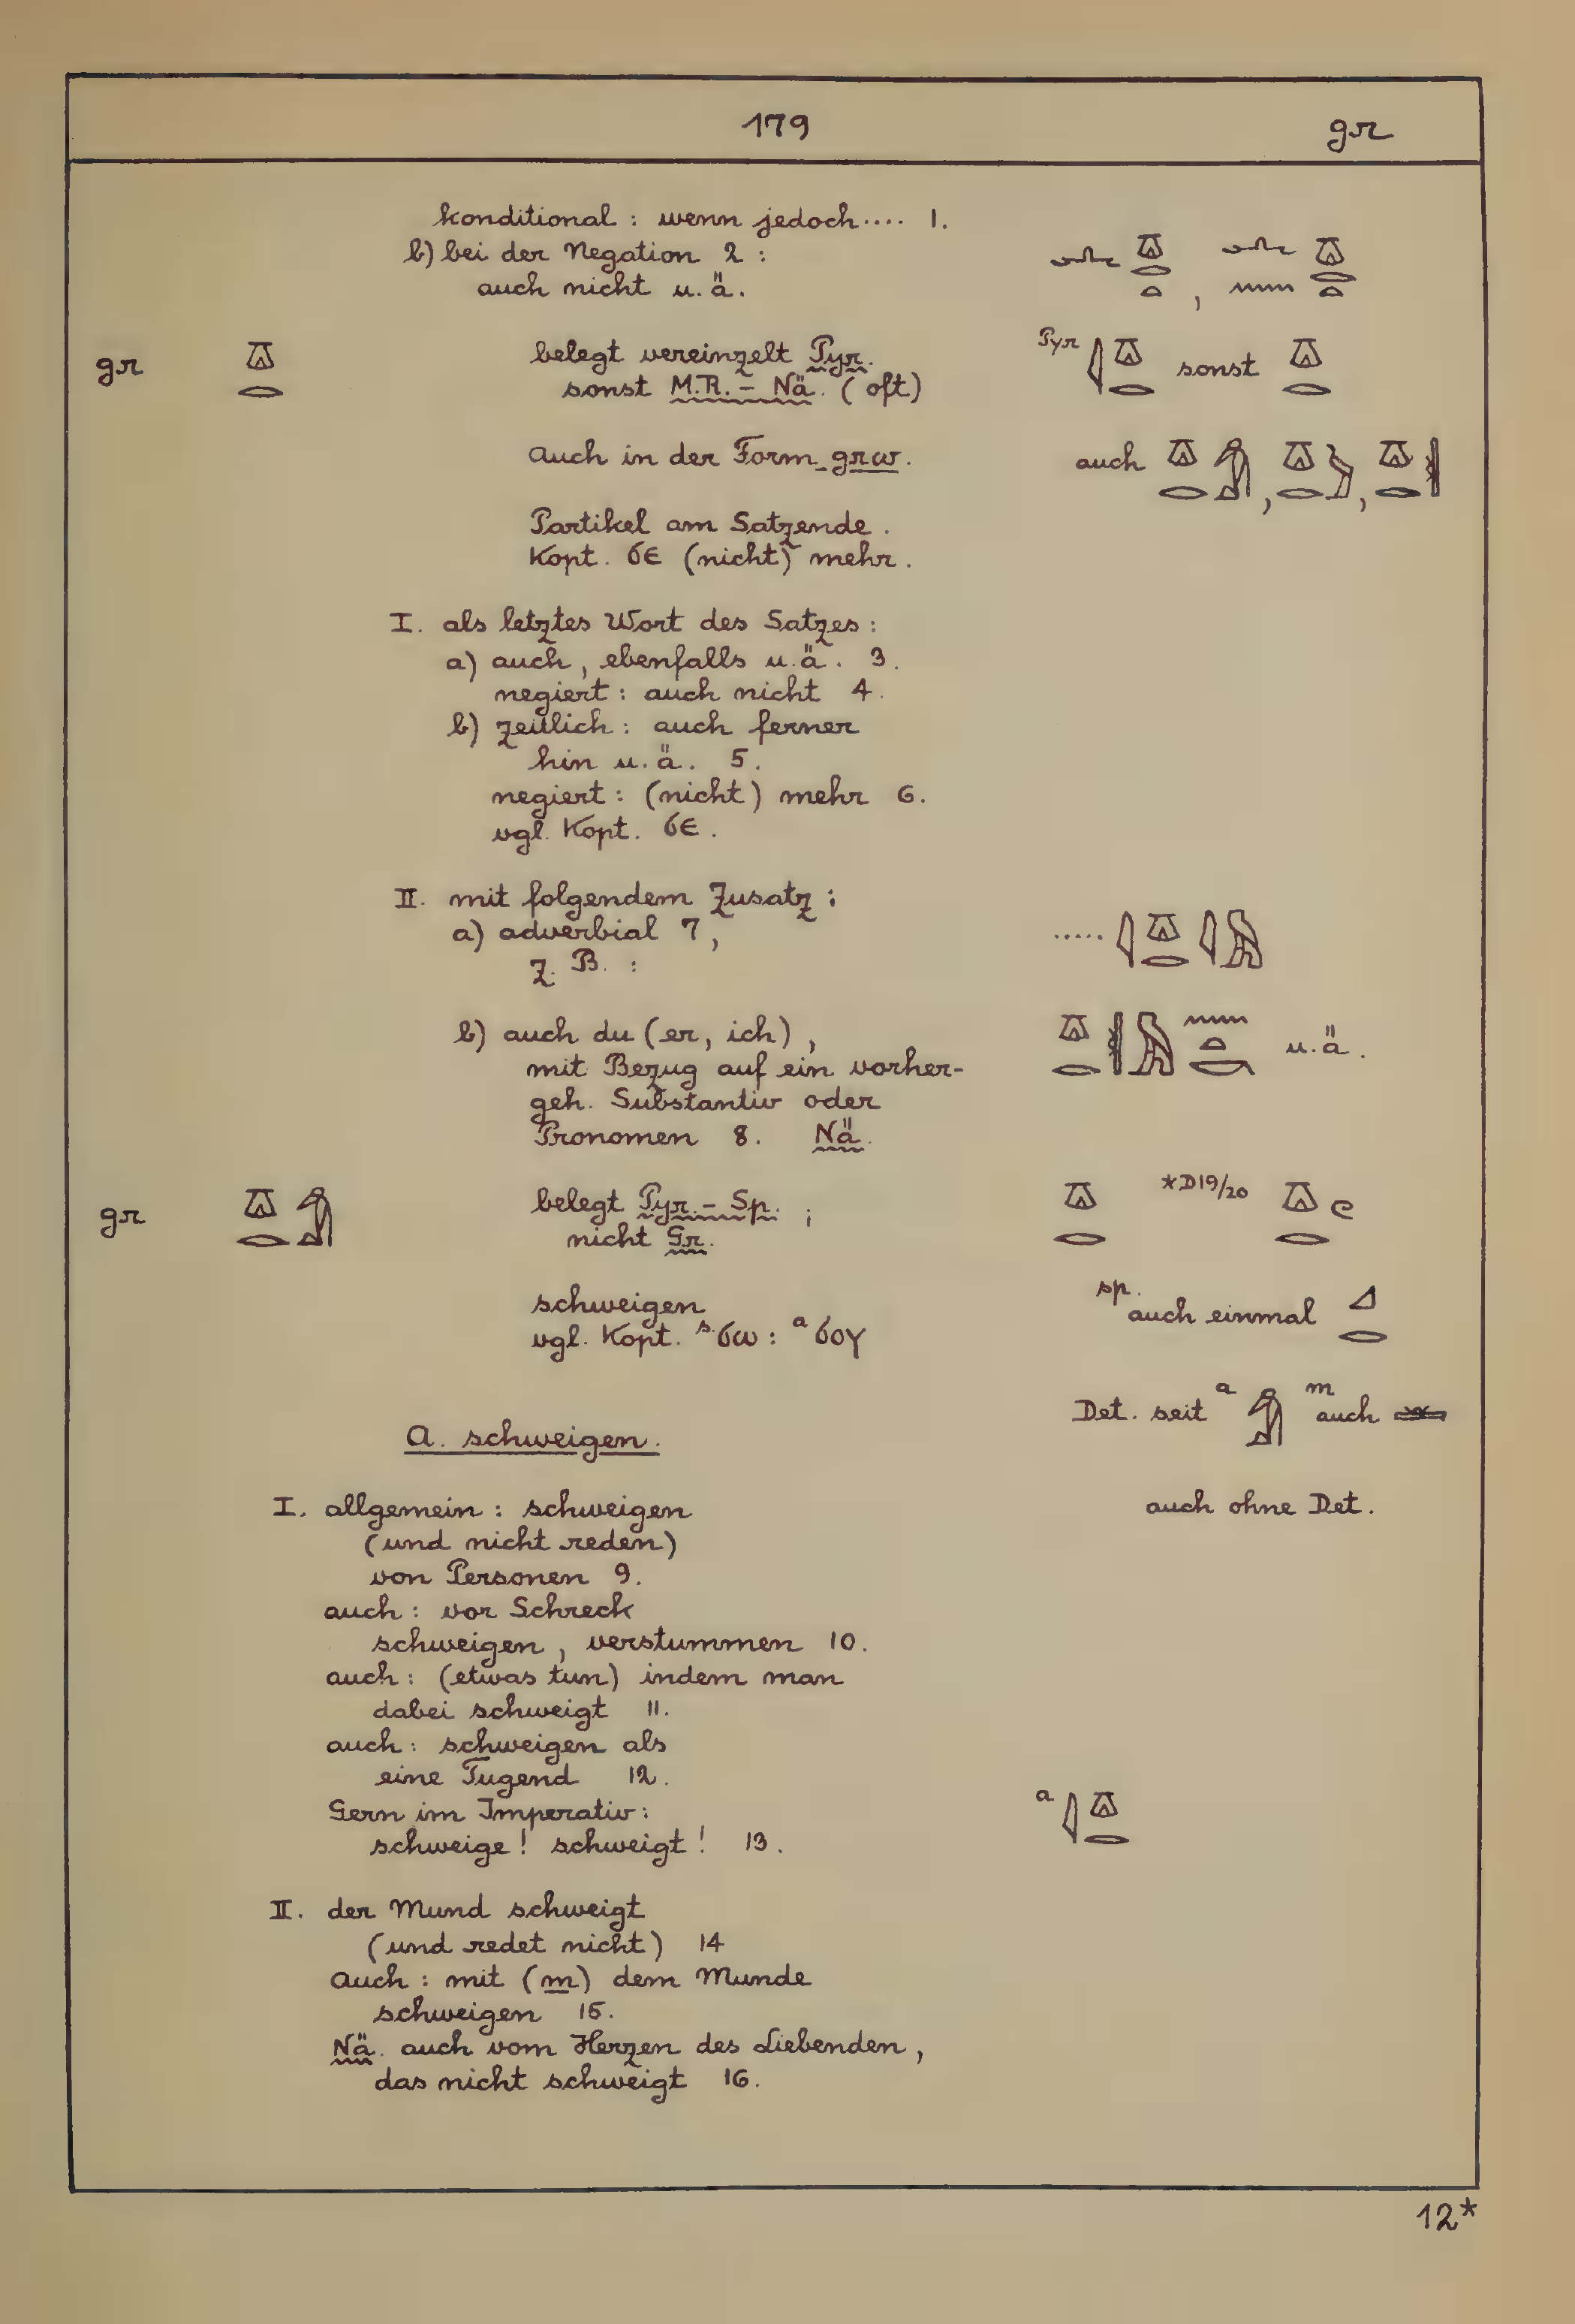 179 gr
konditional : wenn jedoch .... 1.
b) bei der Negation 2 : 𓂜𓎼𓂋𓏏 , 𓂜𓈖𓎼𓂋𓏏
auch nicht u. ä.
gr 𓎼𓂋 belegt vereinzelt Pyr. Pyr 𓇋𓎼𓂋 sonst 𓎼𓂋
sonst M.R. – Nä. (oft)
Auch in der Form grw. auch 𓎼𓂋𓀁 , 𓎼𓂋 , 𓎼𓂋
Partikel am Satzende .
Kopt. ϭⲉ (nicht) mehr .
I. als letztes Wort des Satzes :
a) auch , ebenfalls u. ä . 3 .
negiert : auch nicht 4 .
b) zeitlich : auch ferner
hin u. ä. 5 .
negiert : (nicht) mehr 6 .
vgl. Kopt. ϭⲉ .
II. mit folgendem Zusatz :
a) adverbial 7 , ..... 𓇋𓎼𓂋𓇋
z. B. :
b) auch du (er, ich) , 𓎼𓂋 𓈖𓏏𓎡 u. ä .
mit Bezug auf ein vorher-
geh. Substantiv oder
Pronomen 8 . Nä.
gr 𓎼𓂋𓀁 belegt Pyr. – Sp. ; 𓎼𓂋 *D19/20 𓎼𓂋𓏲
nicht Gr.
schweigen sp. auch einmal 𓈎𓂋
vgl. Kopt. s. ϭⲱ : a ϭⲟⲩ
Det. seit a 𓀁 m auch
A. schweigen .
I. allgemein : schweigen auch ohne Det .
(und nicht reden)
von Personen 9 .
auch : vor Schreck
schweigen , verstummen 10 .
auch : (etwas tun) indem man
dabei schweigt 11 .
auch : schweigen als
eine Tugend 12 .
Gern im Imperativ : a 𓇋𓎼𓂋
schweige ! schweigt ! 13 .
II. der Mund schweigt
(und redet nicht) 14
Auch : mit (m) dem Munde
schweigen 15 .
Nä. auch vom Herzen des Liebenden ,
das nicht schweigt 16 .
12*